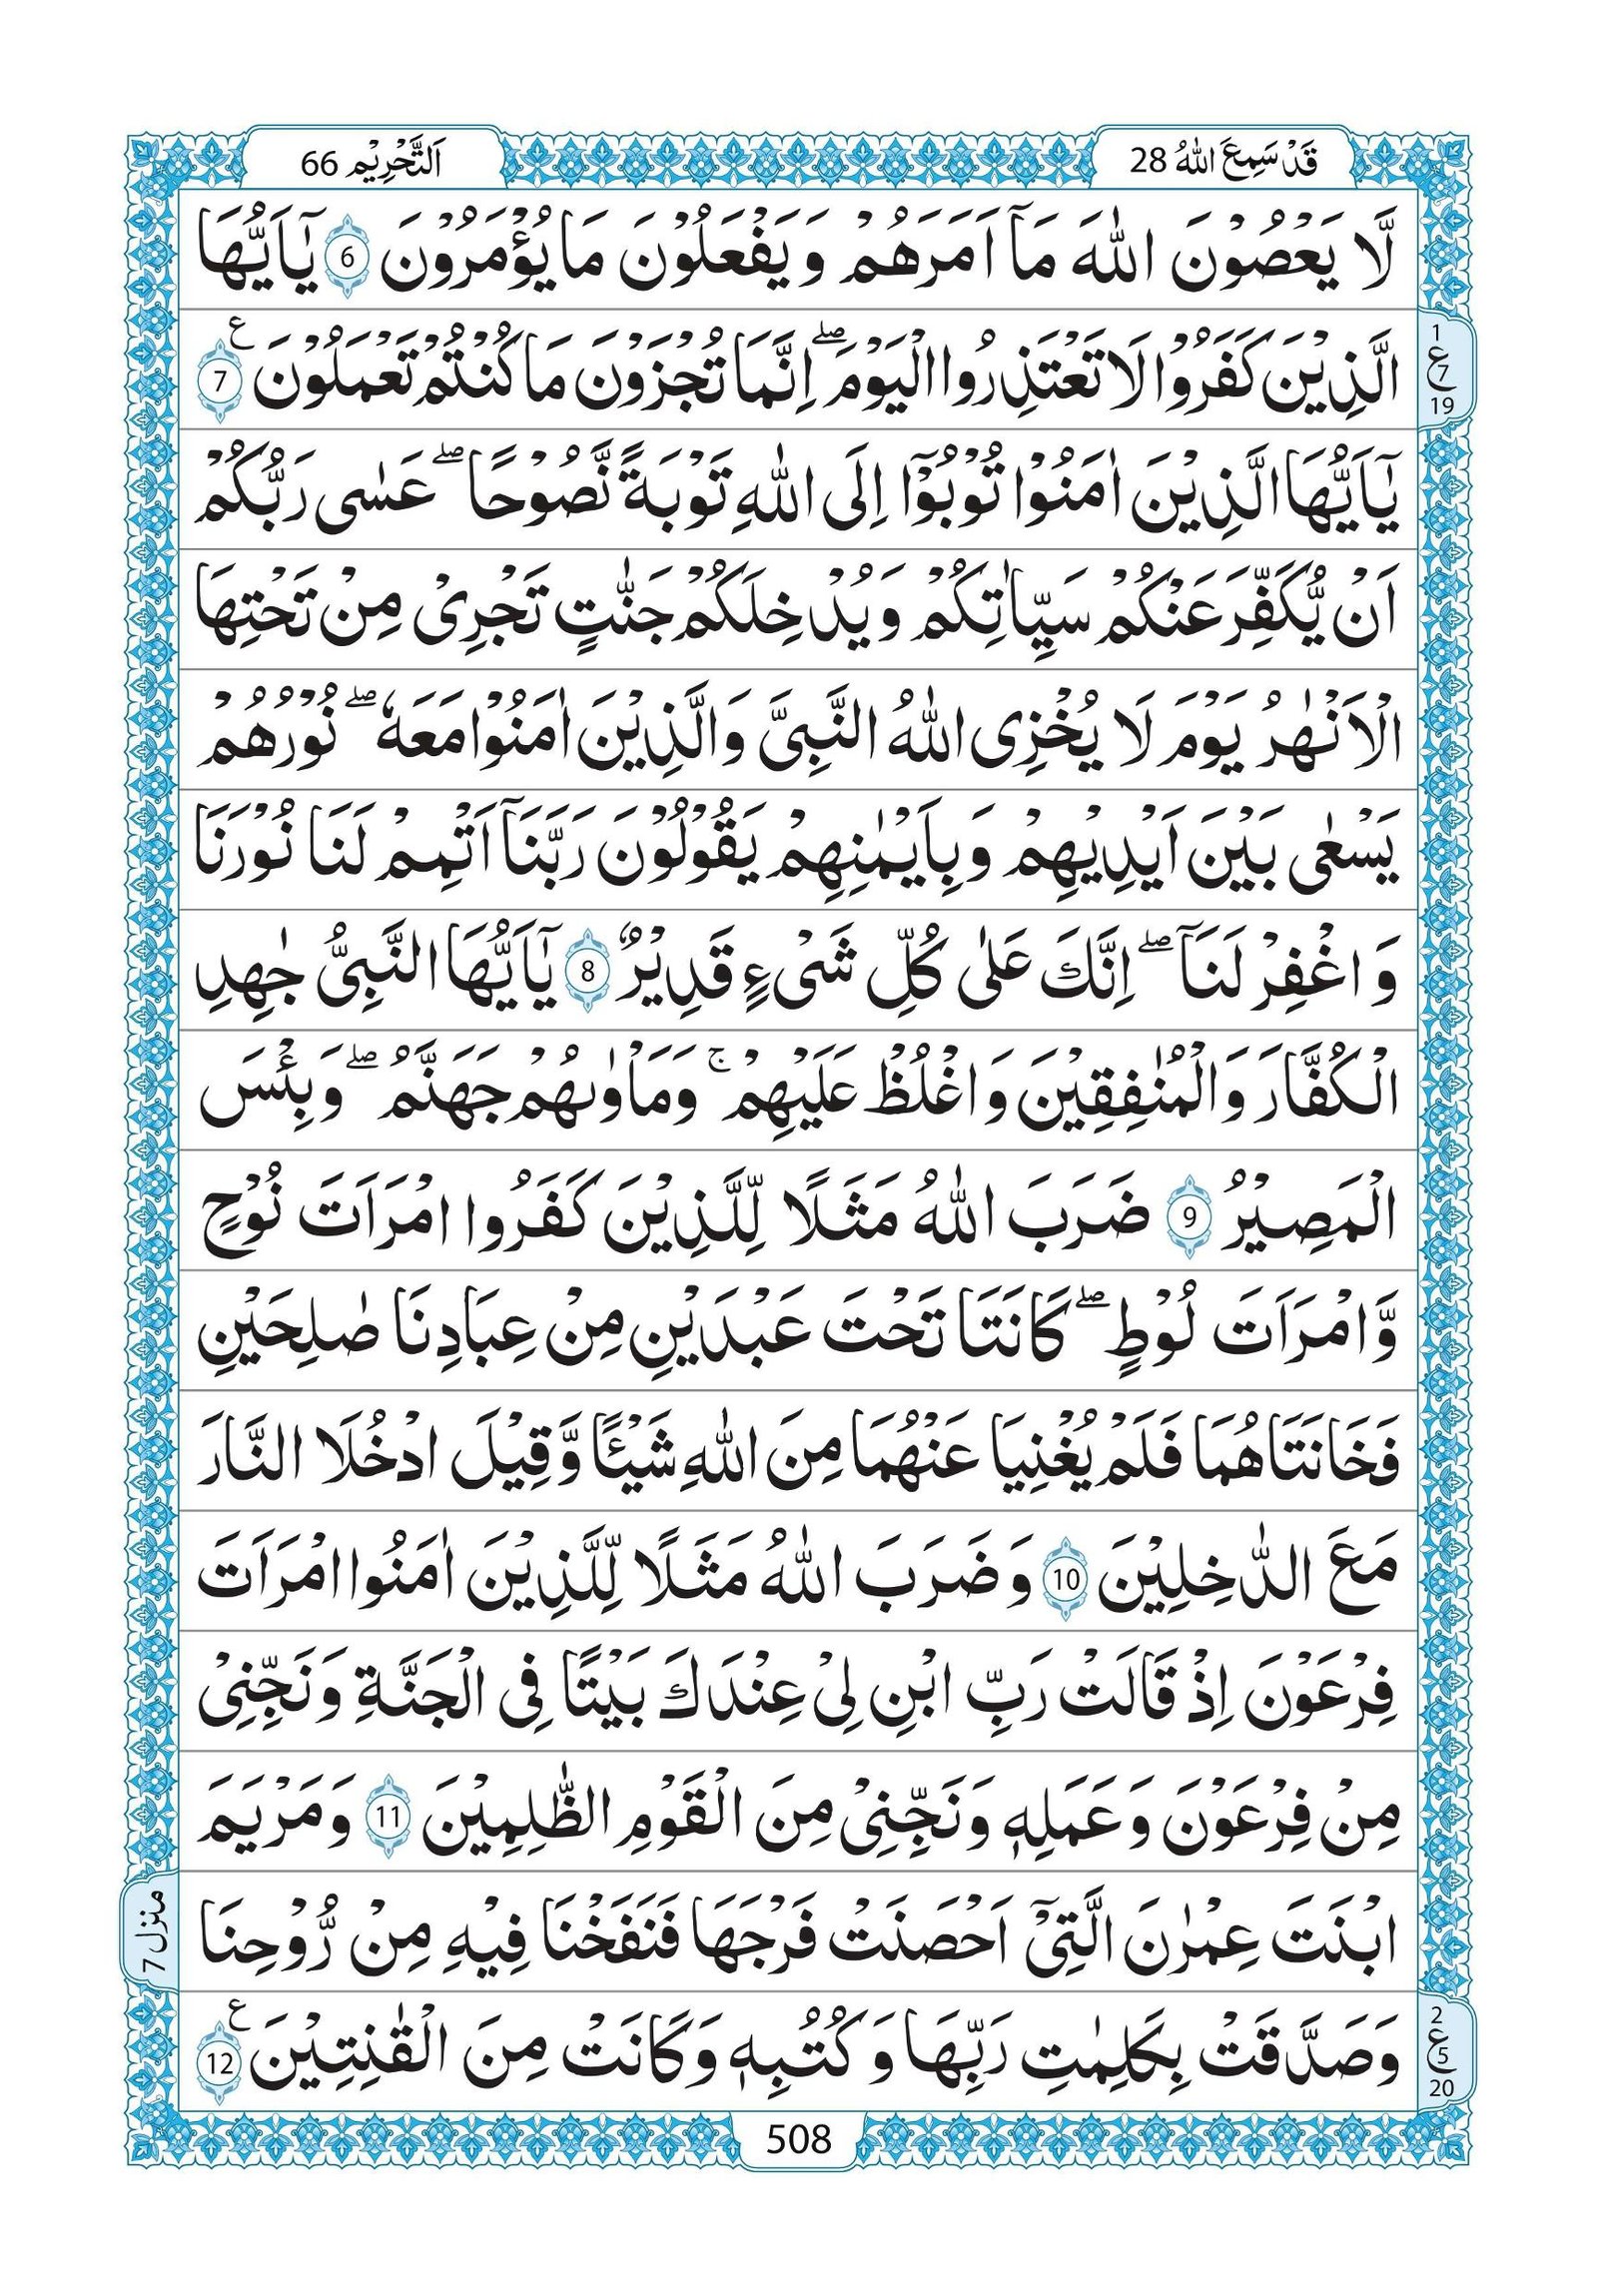 قَدْ سَمِعَ اللّٰهُ 28
اَلتَّحْرِيْم 66
لَّا يَعْصُوْنَ اللّٰهَ مَاۤ اَمَرَهُمْ وَيَفْعَلُوْنَ مَا يُؤْمَرُوْنَ 6 يٰۤاَيُّهَا
الَّذِيْنَ كَفَرُوْا لَا تَعْتَذِرُوا الْيَوْمَ ۖ اِنَّمَا تُجْزَوْنَ مَا كُنْتُمْ تَعْمَلُوْنَ ع 7
1 ع 7 19
يٰۤاَيُّهَا الَّذِيْنَ اٰمَنُوْا تُوْبُوْۤا اِلَى اللّٰهِ تَوْبَةً نَّصُوْحًا ۖ عَسٰى رَبُّكُمْ
اَنْ يُّكَفِّرَ عَنْكُمْ سَيِّاٰتِكُمْ وَيُدْخِلَكُمْ جَنّٰتٍ تَجْرِيْ مِنْ تَحْتِهَا
الْاَنْهٰرُ يَوْمَ لَا يُخْزِى اللّٰهُ النَّبِىَّ وَالَّذِيْنَ اٰمَنُوْا مَعَهٗ ۖ نُوْرُهُمْ
يَسْعٰى بَيْنَ اَيْدِيْهِمْ وَبِاَيْمٰنِهِمْ يَقُوْلُوْنَ رَبَّنَاۤ اَتْمِمْ لَنَا نُوْرَنَا
وَاغْفِرْ لَنَاۤ ۖ اِنَّكَ عَلٰى كُلِّ شَىْءٍ قَدِيْرٌ 8 يٰۤاَيُّهَا النَّبِىُّ جٰهِدِ
الْكُفَّارَ وَالْمُنٰفِقِيْنَ وَاغْلُظْ عَلَيْهِمْ ۚ وَمَاْوٰىهُمْ جَهَنَّمُ ۖ وَبِئْسَ
الْمَصِيْرُ 9 ضَرَبَ اللّٰهُ مَثَلًا لِّلَّذِيْنَ كَفَرُوا امْرَاَتَ نُوْحٍ
وَّامْرَاَتَ لُوْطٍ ۖ كَانَتَا تَحْتَ عَبْدَيْنِ مِنْ عِبَادِنَا صٰلِحَيْنِ
فَخَانَتَاهُمَا فَلَمْ يُغْنِيَا عَنْهُمَا مِنَ اللّٰهِ شَيْـًٔا وَّقِيْلَ ادْخُلَا النَّارَ
مَعَ الدّٰخِلِيْنَ 10 وَضَرَبَ اللّٰهُ مَثَلًا لِّلَّذِيْنَ اٰمَنُوا امْرَاَتَ
فِرْعَوْنَ اِذْ قَالَتْ رَبِّ ابْنِ لِىْ عِنْدَكَ بَيْتًا فِى الْجَنَّةِ وَنَجِّنِىْ
مِنْ فِرْعَوْنَ وَعَمَلِهٖ وَنَجِّنِىْ مِنَ الْقَوْمِ الظّٰلِمِيْنَ 11 وَمَرْيَمَ
ابْنَتَ عِمْرٰنَ الَّتِىْۤ اَحْصَنَتْ فَرْجَهَا فَنَفَخْنَا فِيْهِ مِنْ رُّوْحِنَا
منزل 7
وَصَدَّقَتْ بِكَلِمٰتِ رَبِّهَا وَكُتُبِهٖ وَكَانَتْ مِنَ الْقٰنِتِيْنَ ع 12
2 ع 5 20
508